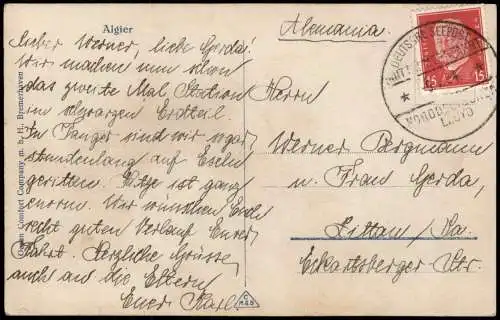 Algier
Alemania
Lieber Werner, liebe Gerda!
Wir machen nun schon
das zweite Mal Station
im schwarzen Erdteil.
In Tanger sind wir sogar
stundenlang auf Eseln
geritten. Hitze ist ganz
enorm. Wir wünschen Euch
recht guten Verlauf Eurer
Fahrt. Herzliche Grüsse,
auch an die Eltern
Euer Karl
Herrn
Werner Bergmann
u. Frau Gerda,
Zittau /Sa.
Eckartsberger-Str.
DEUTSCHE SEEPOST
NORDDEUTSCHER
LLOYD
15 15
Comfort Company m. b. H., Bremerhaven